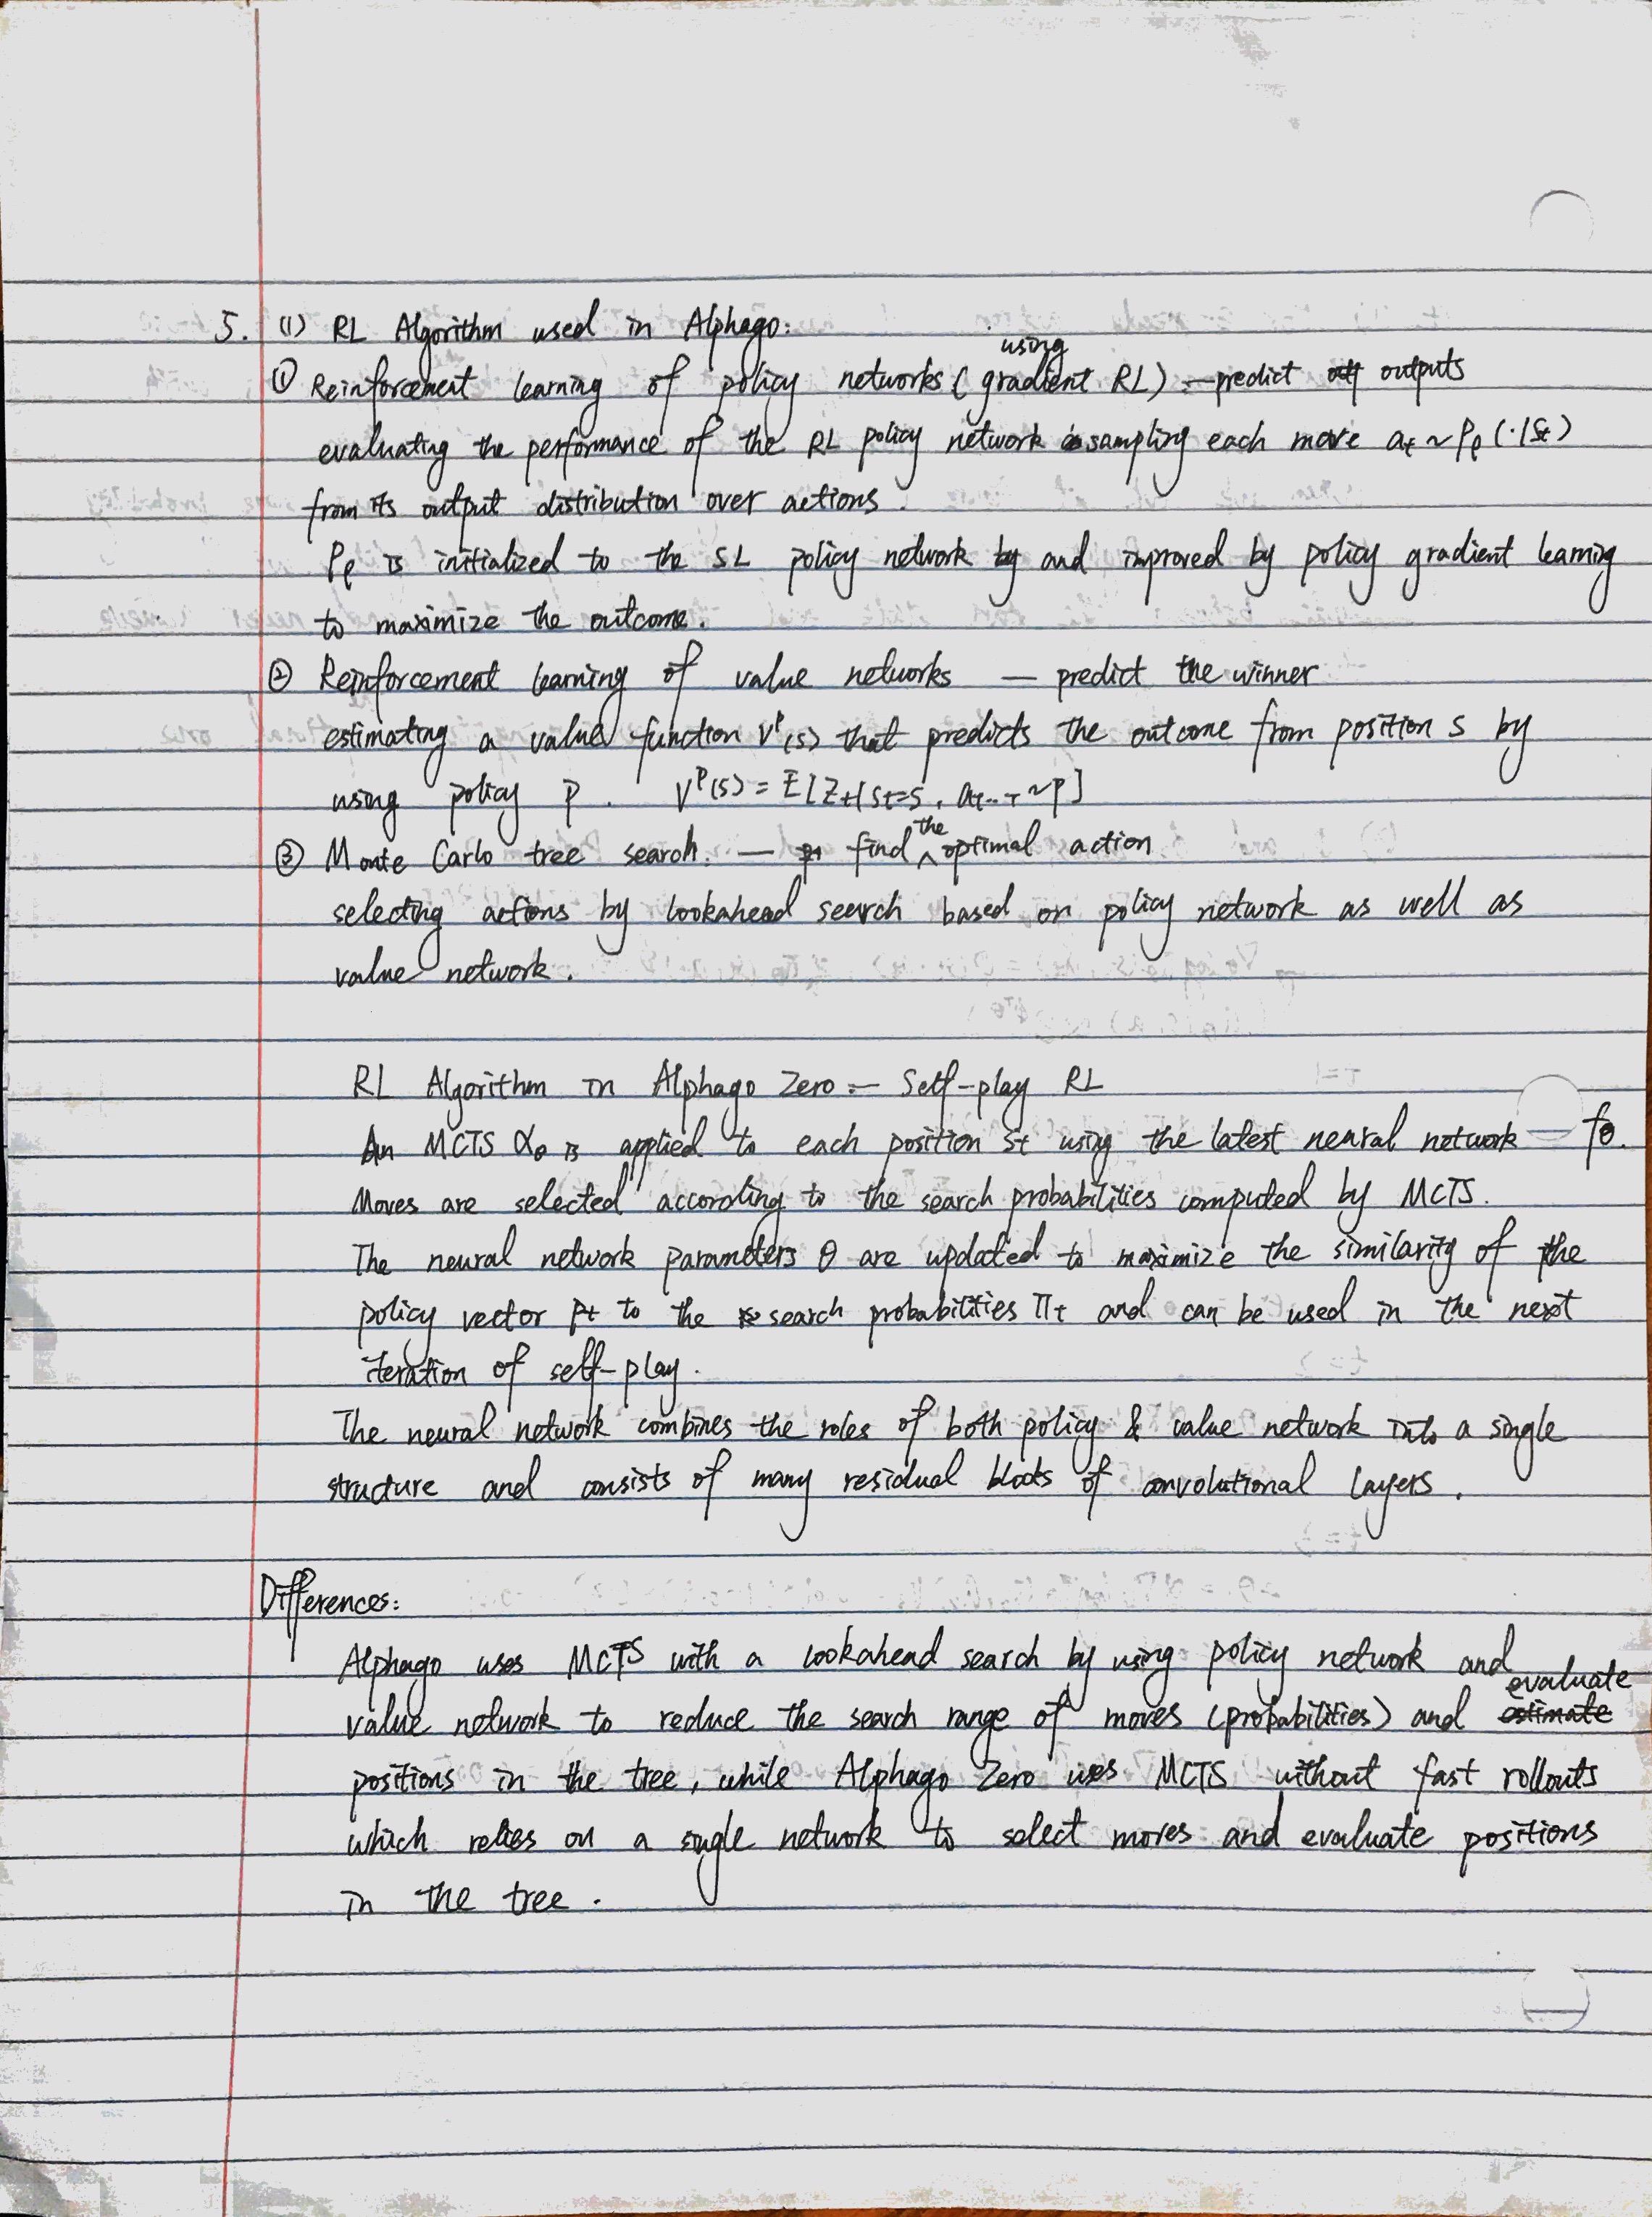 5. (1) RL Algorithm used in Alphago:
① Reinforcement learning of policy networks (using gradient RL) — predict outputs
evaluating the performance of the RL policy network sampling each move at ~ Pρ (·|St)
from its output distribution over actions.
Pρ is initialized to the SL policy network and improved by policy gradient learning
to maximize the outcome.
② Reinforcement learning of value networks — predict the winner
estimating a value function Vᴾ(s) that predicts the outcome from position s by
using policy P. Vᴾ(s) = E[Zt|St=s, at...T ~P]
③ Monte Carlo tree search. — find the optimal action
selecting actions by lookahead search based on policy network as well as
value network.
RL Algorithm in Alphago Zero — Self-play RL
An MCTS αθ is applied to each position St using the latest neural network fθ.
Moves are selected according to the search probabilities computed by MCTS.
The neural network parameters θ are updated to maximize the similarity of the
policy vector Pt to the search probabilities πt and can be used in the next
iteration of self-play.
The neural network combines the roles of both policy & value network into a single
structure and consists of many residual blocks of convolutional layers.
Differences:
Alphago uses MCTS with a lookahead search by using policy network and
value network to reduce the search range of moves (probabilities) and evaluate
positions in the tree, while Alphago Zero uses MCTS without fast rollouts
which relies on a single network to select moves and evaluate positions
in the tree.